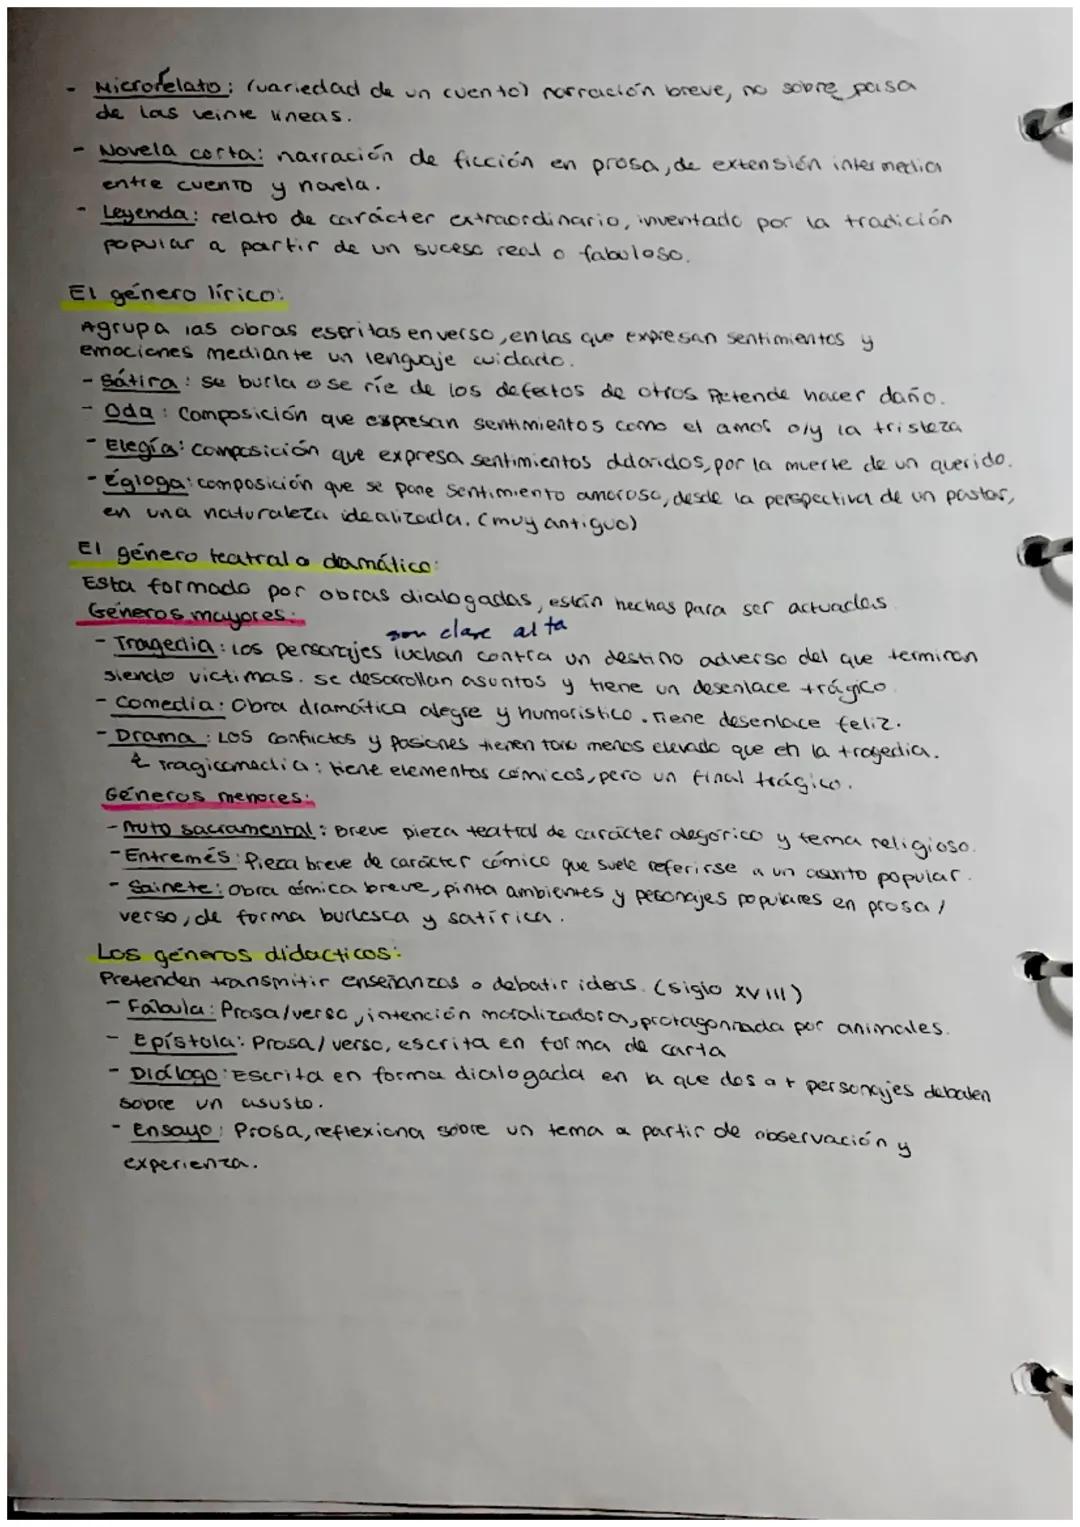 - Microrelato: (variedad de un cuento) narración breve, no sobre pasa
de las veinte líneas.
- Novela corta: narración de ficción en prosa, de extensión intermedia
entre cuento y novela.
- Leyenda: relato de carácter extraordinario, inventado por la tradición
popular a partir de un suceso real o fabuloso.
El género lírico:
Agrupa las obras escritas en verso, en las que expresan sentimientos y
emociones mediante un lenguaje cuidado.
- Sátira: se burla o se ríe de los defectos de otros Pretende hacer daño.
- Oda: Composición que expresan sentimientos como el amor o/y la tristeza
- Elegía: composición que expresa sentimientos doloridos, por la muerte de un querido.
- Égloga: composición que se pone sentimiento amoroso, desde la perspectiva de un pastor,
en una naturaleza idealizada. (muy antiguo)
El género teatral o damático:
Esta formado por obras dialogadas, están hechas para ser actuadas
Géneros mayores:
son clase alta
- Tragedia: los personajes luchan contra un destino adverso del que terminan
siendo victimas. se desarrollan asuntos y tiene un desenlace trágico
- Comedia: Obra dramática alegre y humoristico. Tiene desenlace feliz.
- Drama: Los conflictos y pasiones tienen tono menos elevado que en la tragedia.
Tragicomedia: tiene elementos cómicos, pero un final trágico.
Géneros menores:
- Auto sacramental: Breve pieza teatral de carácter alegórico y tema religioso.
- Entremés: Pieza breve de carácter cómico que suele referirse a un asunto popular.
- Sainete: Obra cómica breve, pinta ambientes y pesonajes populares en prosa/
verso, de forma burlesca y satírica.
Los géneros didacticos:
Pretenden transmitir enseñanzas o debatir ideas. (siglo XVIII)
- Fábula: Prosa/verso, intención moralizadora, protagonizada por animales.
- Epístola: Prosa/verso, escrita en forma de carta
- Diálogo: Escrita en forma dialogada en la que dos a + personajes debaten
sobre un asusto.
- Ensayo: Prosa, reflexiona sobre un tema a partir de observación y
experienza.